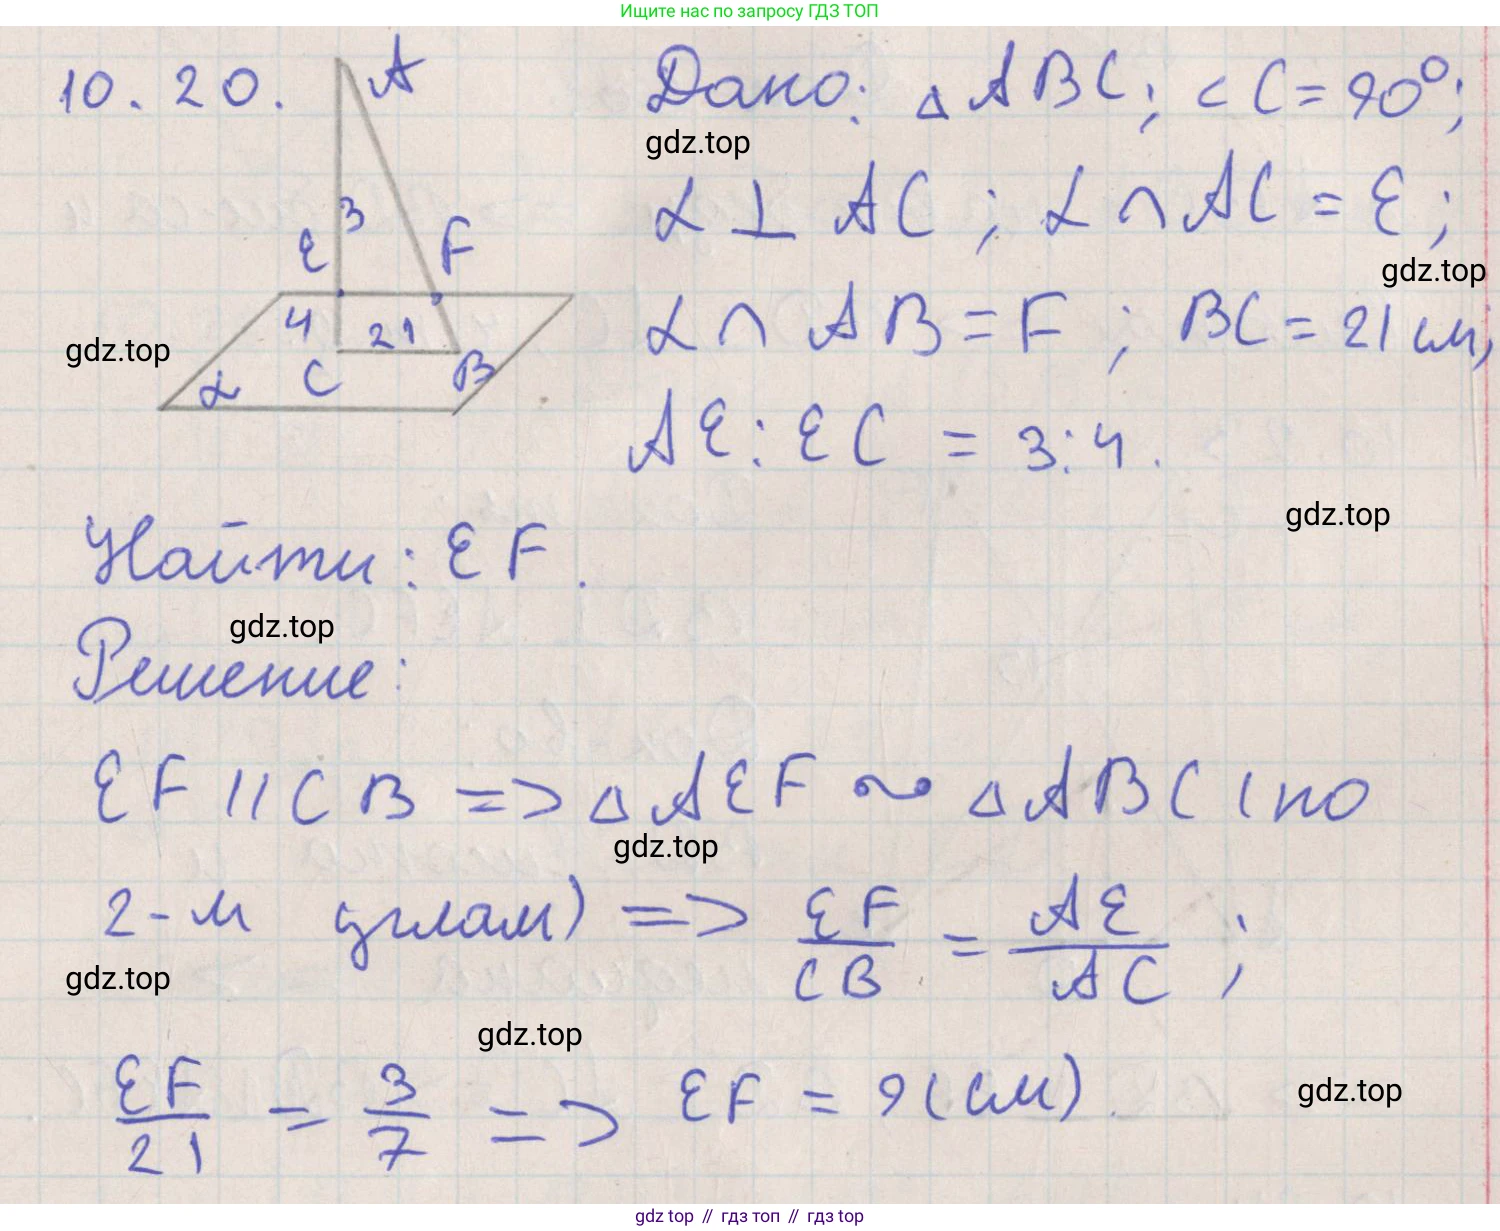 Ищите нас по запросу ГДЗ ТОП
10.20.
A
3
E
F
4
21
C
B
α
Дано: △ABC; <C=90°;
gdz.top
α⊥AC; α∩AC=E;
gdz.top
α∩AB=F; BC=21см;
gdz.top
AE:EC=3:4.
gdz.top
Найти: EF.
gdz.top
Решение:
EF||CB => △AEF ~ △ABC (по
gdz.top
2-м углам) => EF/CB = AE/AC;
gdz.top
gdz.top
EF/21 = 3/7 => EF = 9(см).
gdz.top
gdz top // гдз топ // гдз top